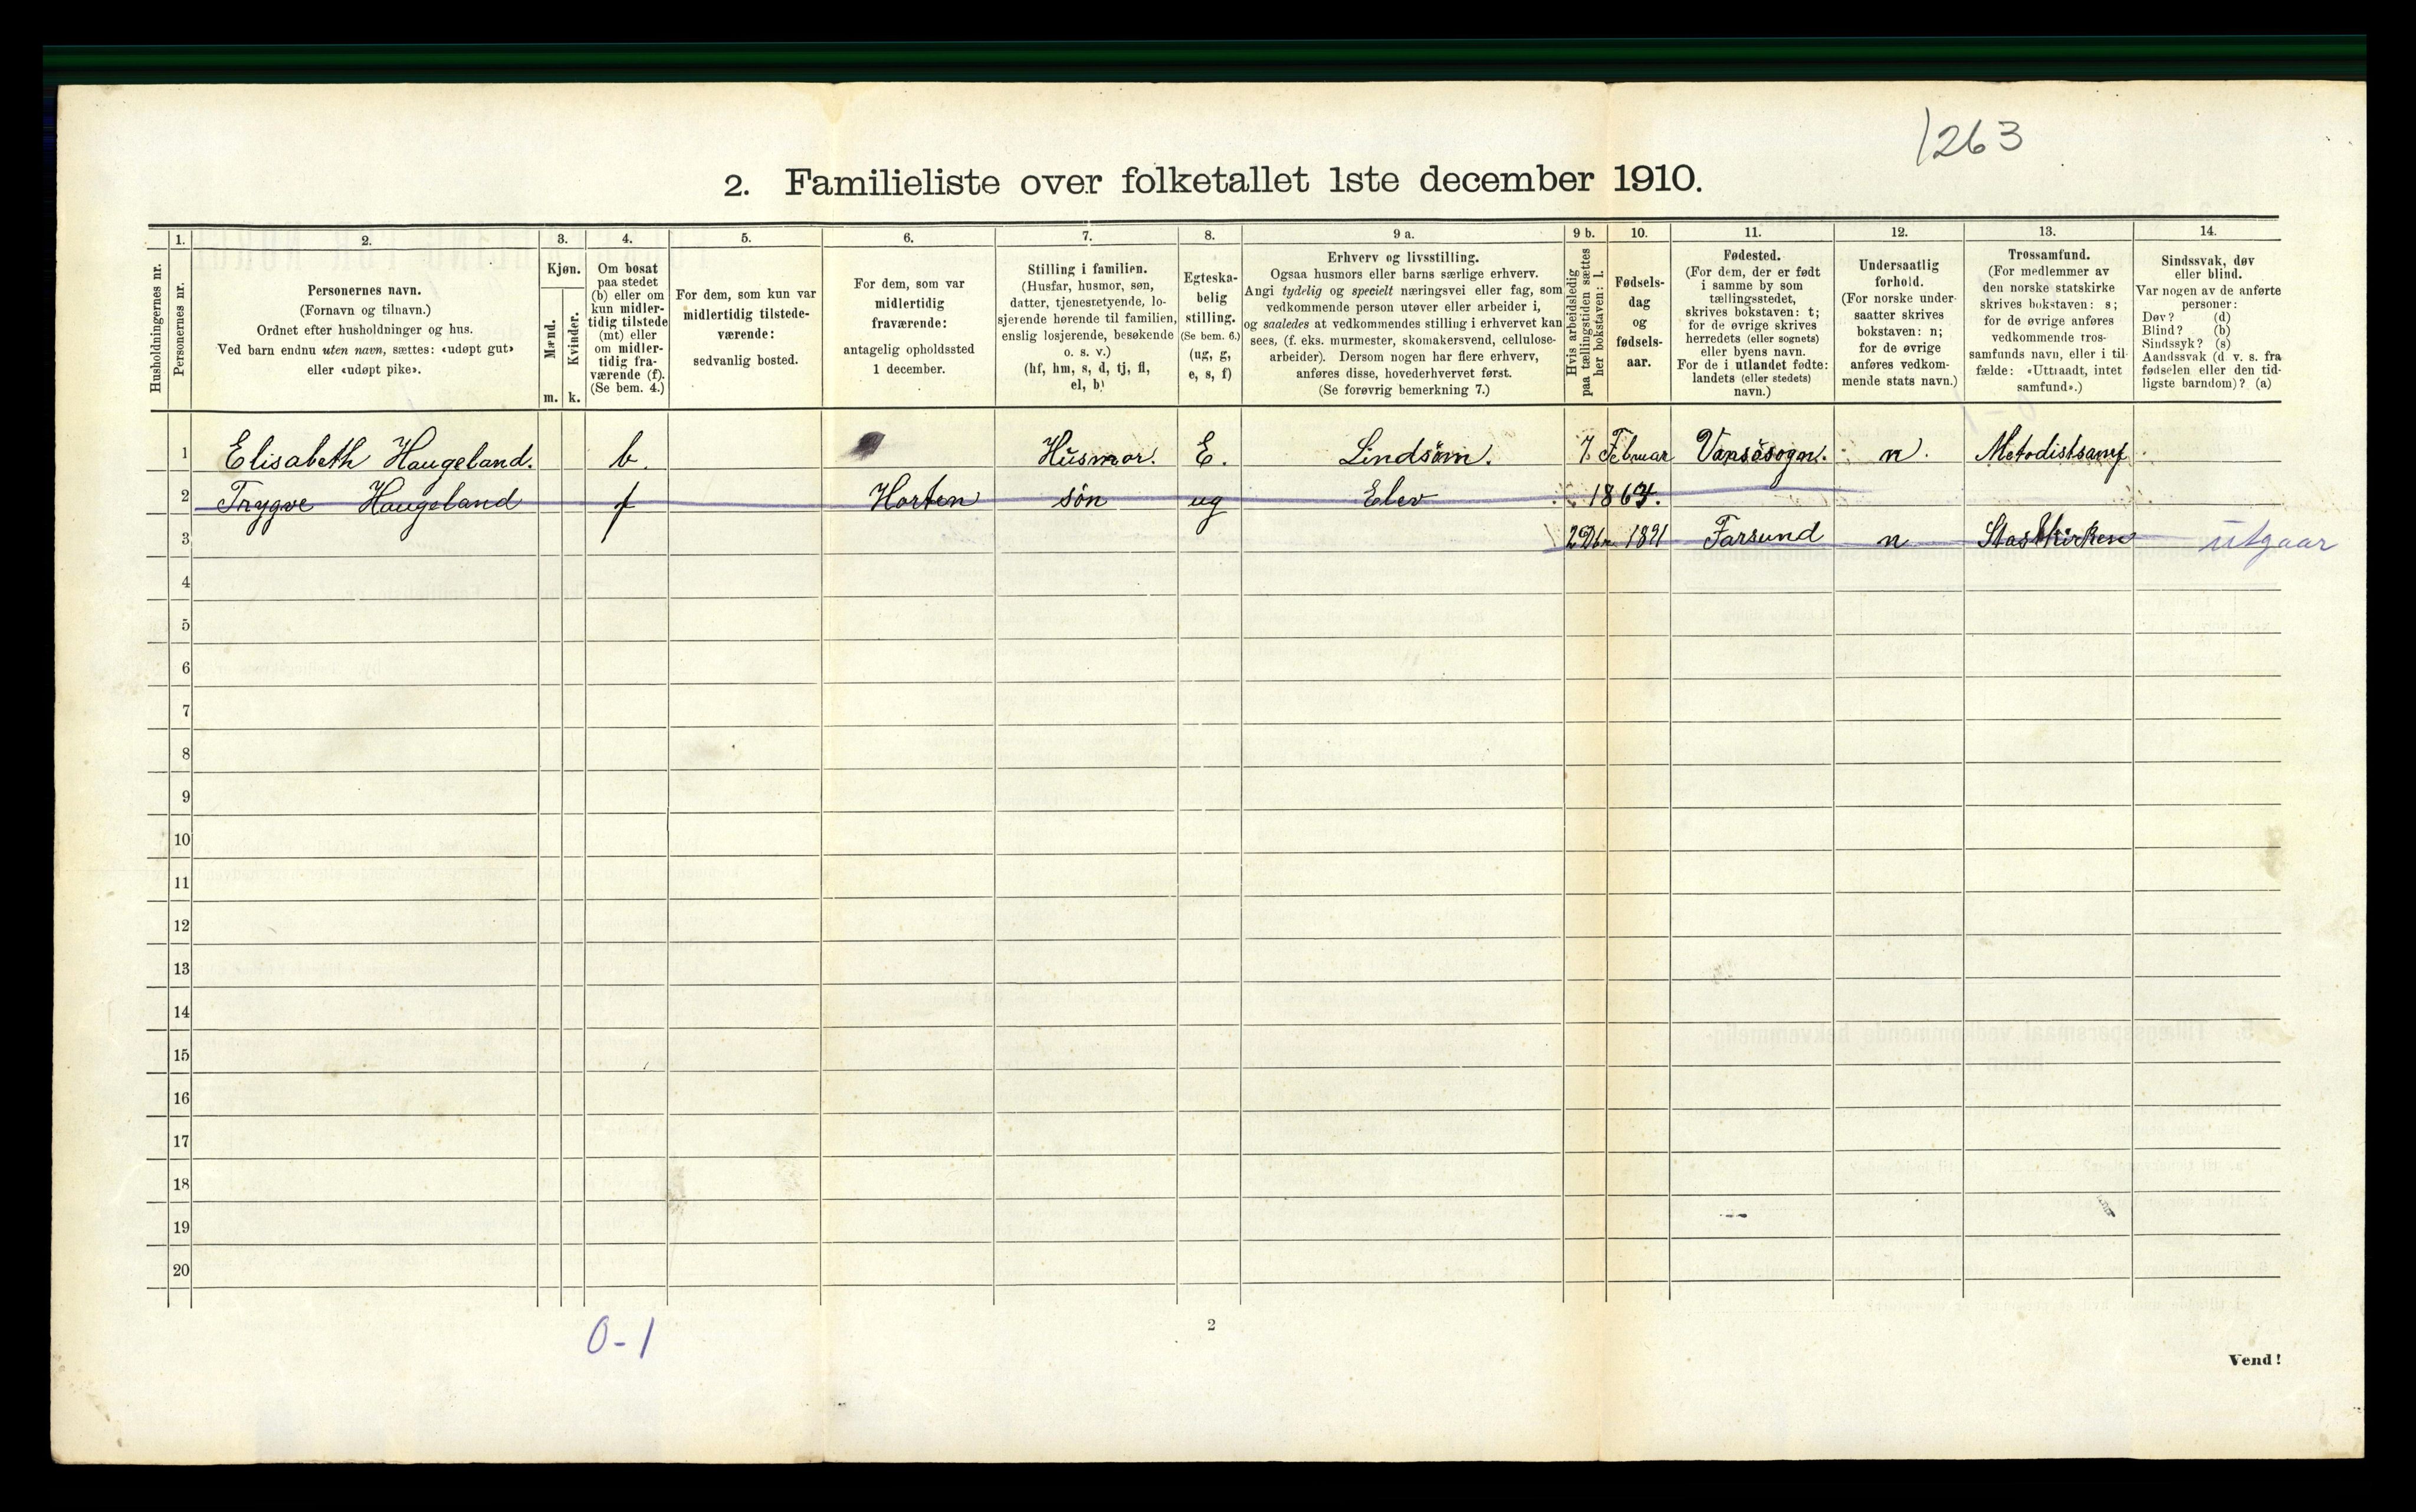 1263
2. Familieliste over folketallet 1ste december 1910.
Husholdningernes nr.
1.
Personernes nr.
2.
Personernes navn.
(Fornavn og tilnavn.)
Ordnet efter husholdninger og hus.
Ved barn endnu uten navn, sættes: «udøpt gut»
eller «udøpt pike».
3.
Kjøn.
Mænd.
Kvinder.
m. k.
4.
Om bosat
paa stedet
(b) eller om
kun midler-
tidig tilstede
(mt) eller
om midler-
tidig fra-
værende (f).
(Se bem. 4.)
5.
For dem, som kun var
midlertidig tilstede-
værende:
sedvanlig bosted.
6.
For dem, som var
midlertidig
fraværende:
antagelig opholdssted
1 december.
7.
Stilling i familien.
(Husfar, husmor, søn,
datter, tjenestetyende, lo-
sjerende hørende til familien,
enslig losjerende, besøkende
o. s. v.)
(hf, hm, s, d, tj, fl,
el, b)
8.
Egteska-
belig
stilling.
(Se bem. 6.)
(ug, g,
e, s, f)
9 a.
Erhverv og livsstilling.
Ogsaa husmors eller barns særlige erhverv.
Angi tydelig og specielt næringsvei eller fag, som
vedkommende person utøver eller arbeider i,
og saaledes at vedkommendes stilling i erhvervet kan
sees, (f. eks. murmester, skomakersvend, cellulose-
arbeider). Dersom nogen har flere erhverv,
anføres disse, hovederhvervet først.
(Se forøvrig bemerkning 7.)
9 b.
Hvis arbeidsledig
paa tællingstiden sættes
her bokstaven: l.
10.
Fødsels-
dag
og
fødsels-
aar.
11.
Fødested.
(For dem, der er født
i samme by som
tællingsstedet,
skrives bokstaven: t;
for de øvrige skrives
herredets (eller sognets)
eller byens navn.
For de i utlandet fødte:
landets (eller stedets)
navn.)
12.
Undersaatlig
forhold.
(For norske under-
saatter skrives
bokstaven: n;
for de øvrige
anføres vedkom-
mende stats navn.)
13.
Trossamfund.
(For medlemmer av
den norske statskirke
skrives bokstaven: s;
for de øvrige anføres
vedkommende tros-
samfunds navn, eller i til-
fælde: «Uttraadt, intet
samfund».)
14.
Sindssvak, døv
eller blind.
Var nogen av de anførte
personer:
Døv? (d)
Blind? (b)
Sindssyk? (s)
Aandssvak (d. v. s. fra
fødselen eller den tid-
ligste barndom)? (a)
1 Elisabeth Haugeland. b. Husmor. E. Lindsöm. 7. Februar Vansösogn. n. Metodistsamf
2 Trygve Haugeland f Horten sön ug Elev 1864.
3 2 Dbr. 1891 Farsund n Statskirken utgaar
4
5
6
7
8
9
10
11
12
13
14
15
16
17
18
19
20
0-1
2
Vend!